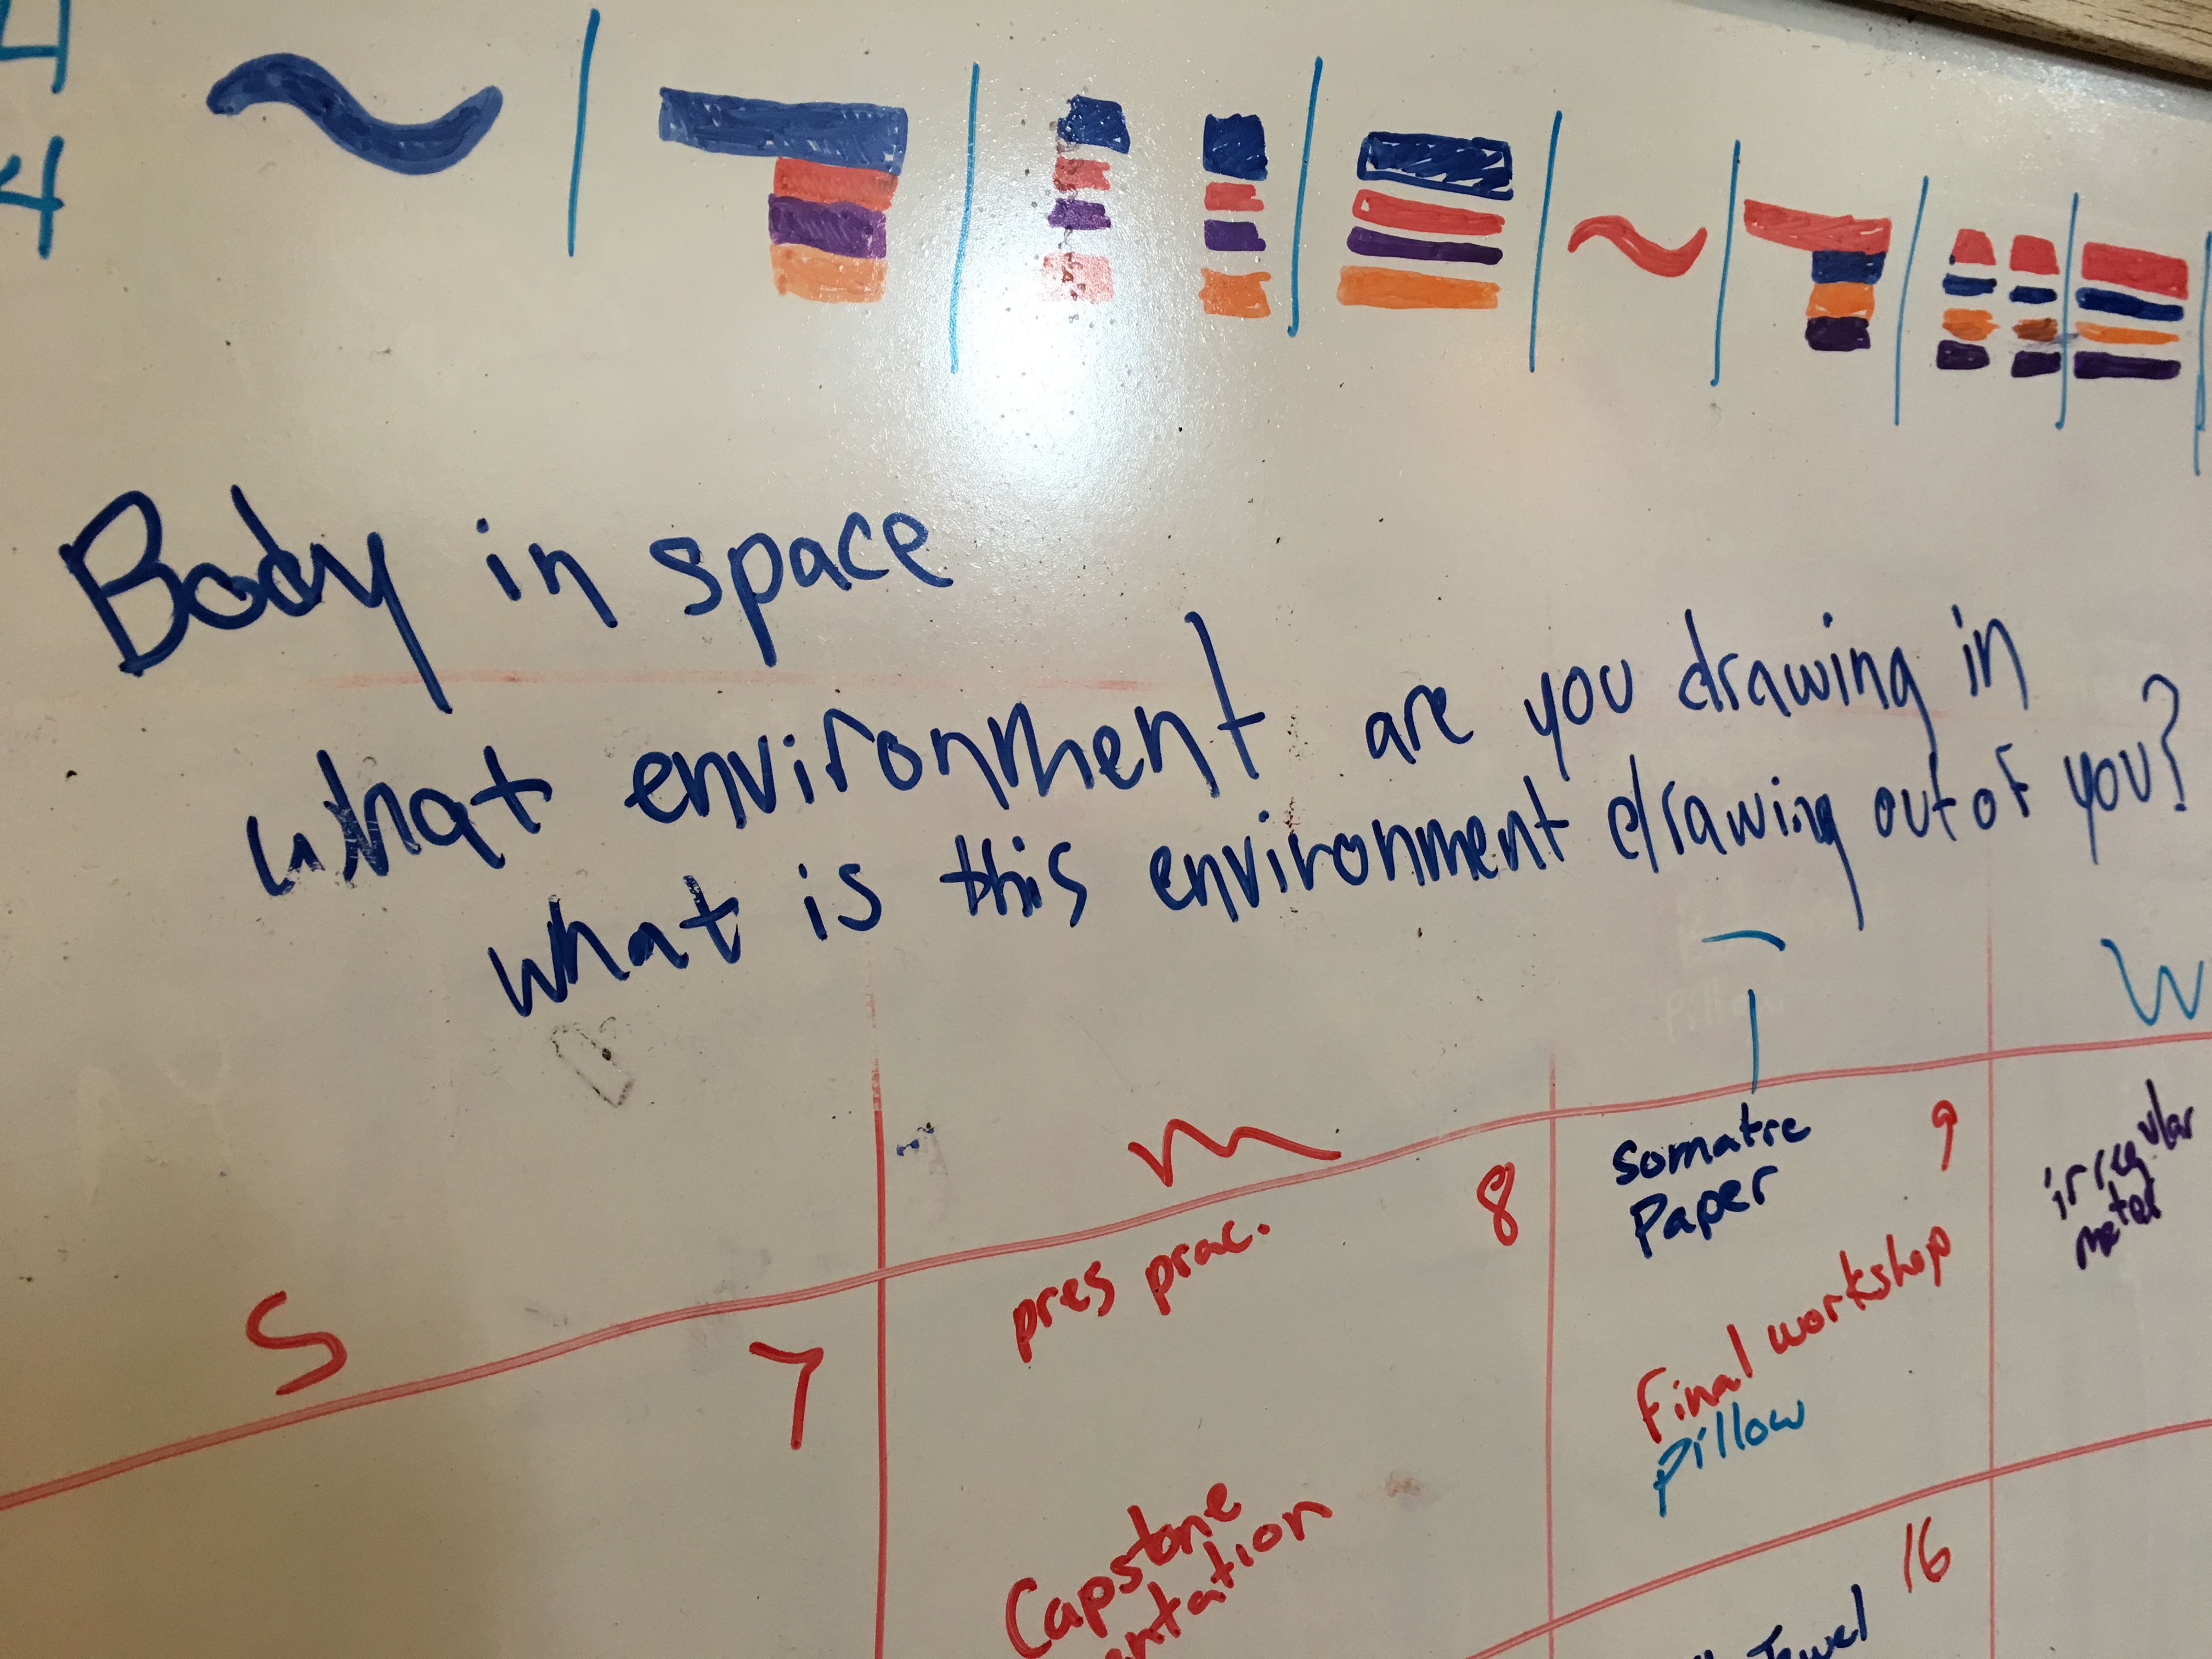 4
4
Body in space
what environment are you drawing in
what is this environment drawing out of you?
T
W
S
M
7
8
pres prac.
Capstone
9
Somatic
Paper
Final workshop
pillow
irregular
meter
16